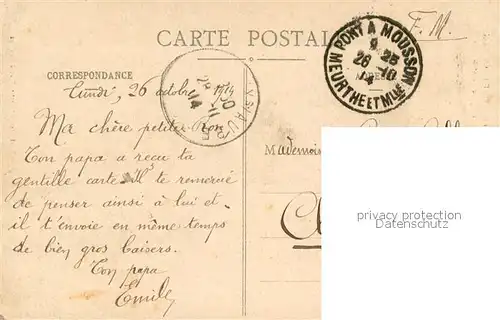 CARTE POSTALE
F. M.
PONT A MOUSSON
9 25
26 10
14
MEURTHE ET Mlle
CORRESPONDANCE
Lundi, 26 octobre 1914
Ma chère petite Rose
Ton papa a reçu ta
gentille carte. Il te remercie
de penser ainsi à lui et
il t'envoie en même temps
de bien gros baisers.
Ton papa
Emile
Mademoise
privacy protection
Datenschutz